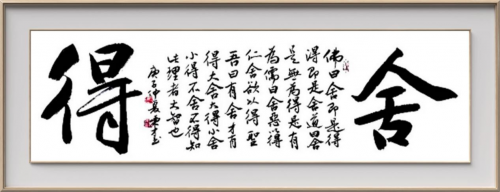 舍
佛曰舍即是得
得即是舍道曰舍
是無為得是有
為儒曰舍惡得
仁舍欲以得聖
吾曰有舍才有
得大舍大得小舍
小得不舍不得知
此理者大智也
庚子仲夏
得